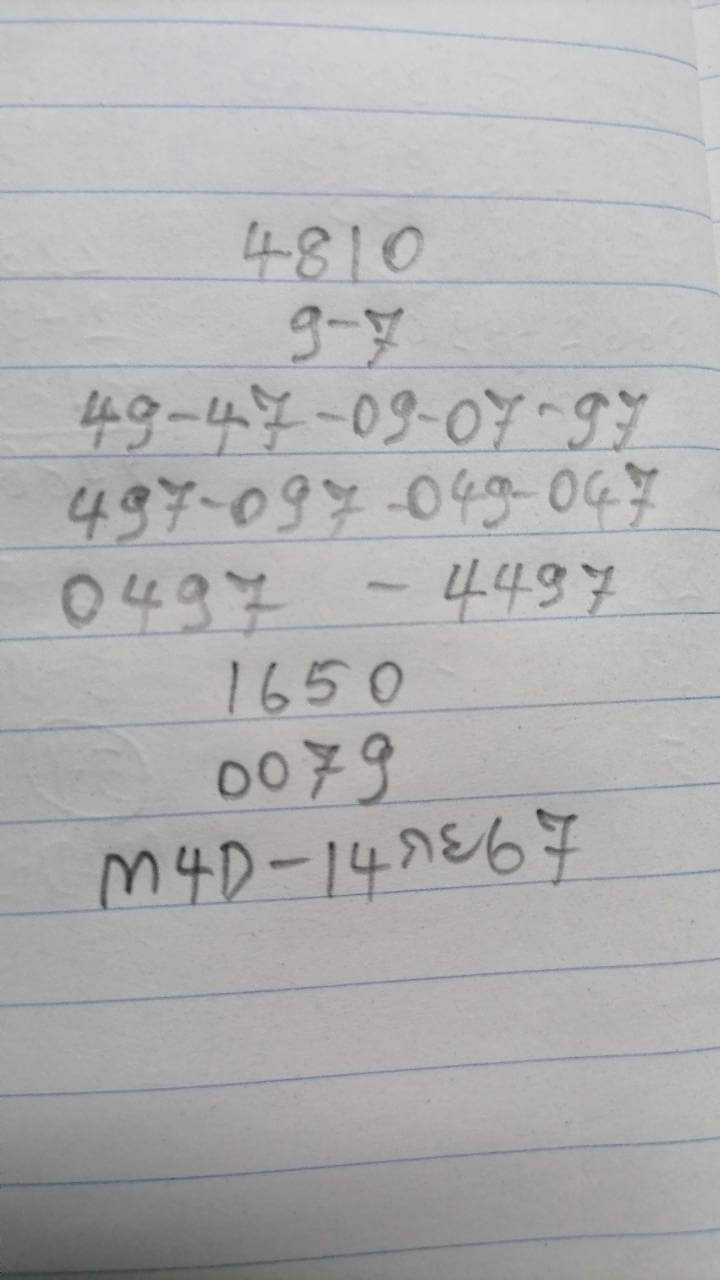 4810
9-7
49-47-09-07-97
497-097-049-047
0497 - 4497
1650
0079
M4D-14กย67